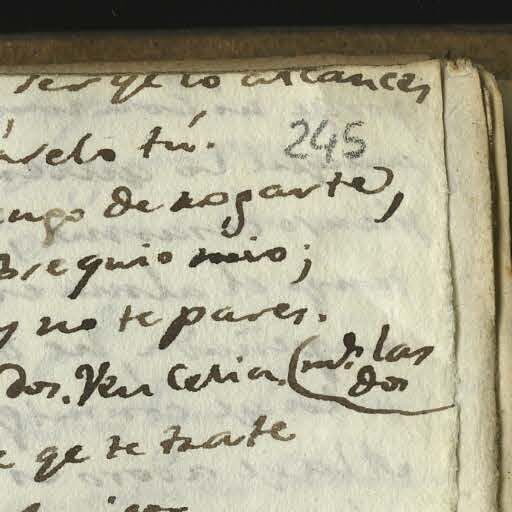 ser qe lo alcances
245
relo tú.
engo de rogarte,
sequio mio;
y no te pares.
dos. Ven Celia. (vds. las
dos
qe te trate